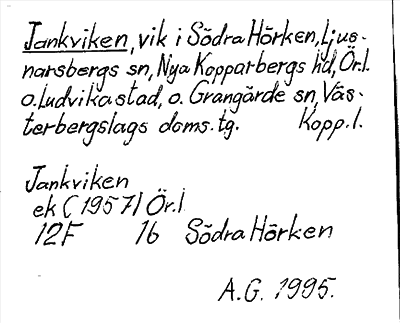 Jankviken, vik i Södra Hörken, Ljus-
narsbergs sn, Nya Kopparbergs hd, Ör.l.
o. Ludvika stad, o. Grangärde sn, Väs-
terbergslags doms.tg. Kopp.l.
Jankviken
ek (1957) Ör.l.
12F 16 Södra Hörken
A.G. 1995.